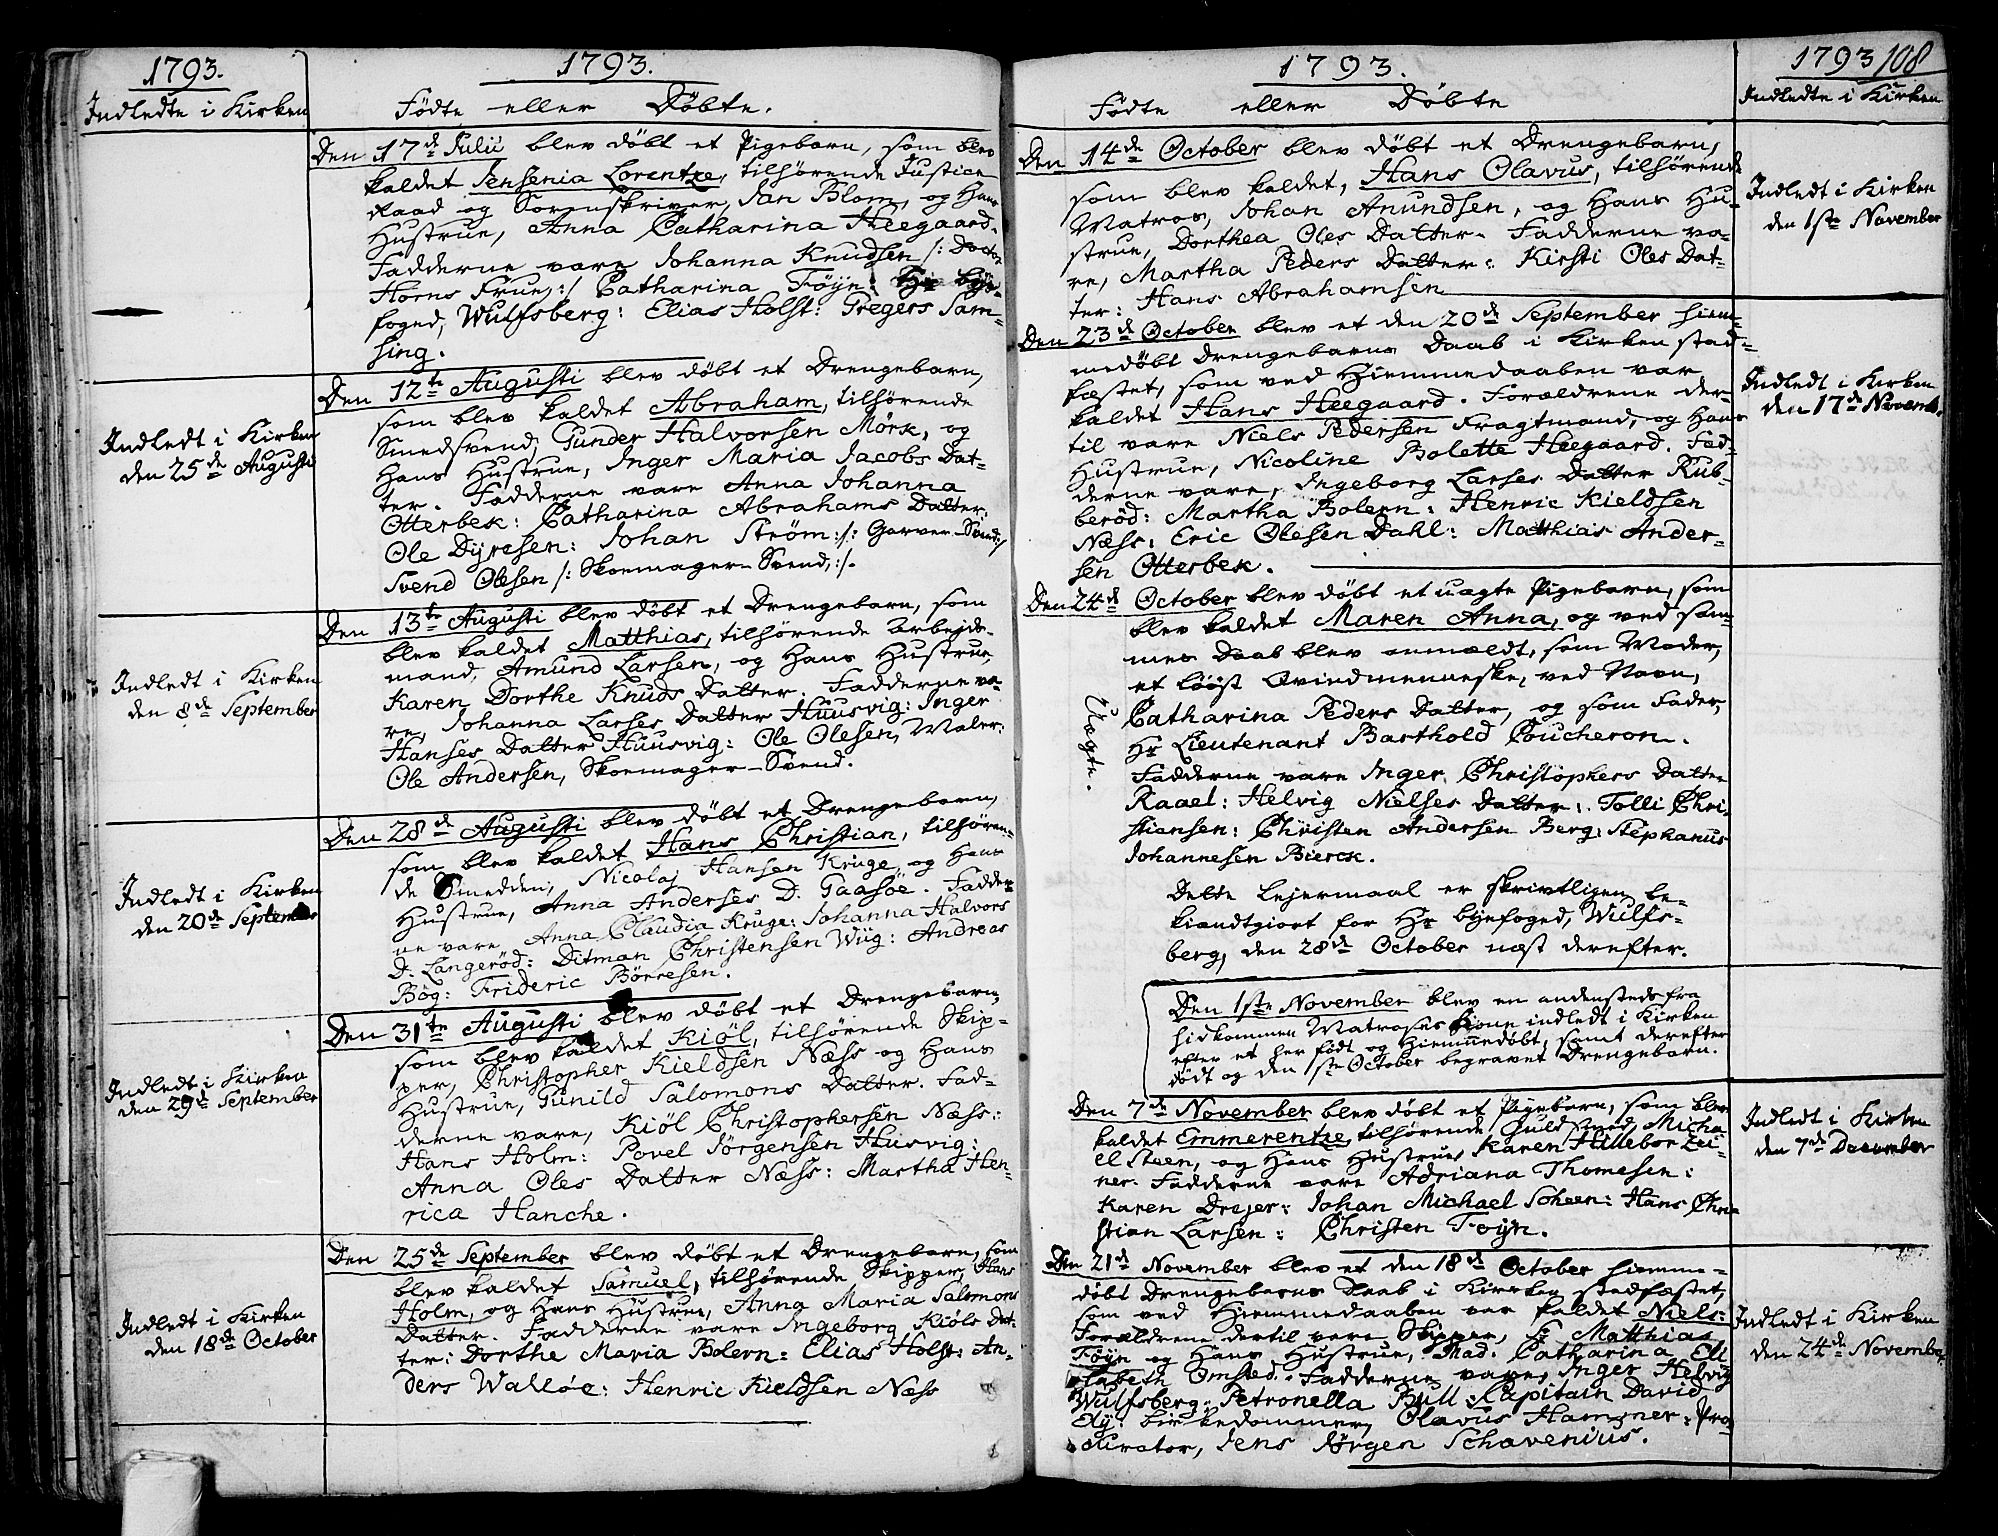 1793.
Indledte i Kirken
1793.
Fødte eller Døbte.
Den 17de Julii blev døbt et Pigebarn, som blev
kaldet Jensenia Lorentze, tilhørende Justice
Raad og Sorenskriver, Jan Blom, og Hans
Hustrue, Anna Catharina Heegaard.
Fadderne vare Johanna Knudsen /: Doctor
Horns Frue, :/ Catharina Föyn: Hr bÿe-
foged, Wulfsberg: Elias Holst: Gregers Sam-
sing.
Den 12te Augusti blev døbt et Drengebarn,
som blev kaldet Abraham, tilhørende
Smedsvend, Gunder Halvorsen Mörk, og
Hans Hustrue, Inger Maria Jacobs Dat-
ter. Fadderne vare Anna Johanna
Otterbek: Catharina Abrahams Datter:
Ole Dÿresen: Johan Ström :/: Garver-Svend :/
Svend Olesen /: Skoemager-Svend, :/.
Indledt i Kirken
den 25de Augusti
Den 13te Augusti blev døbt et Drengebarn, som
blev kaldet Matthias, tilhørende Arbejds-
mand, Amund Larsen, og Hans Hustrue,
Karen Dorthe Knuds Datter. Fadderne va-
re, Johanna Larses Datter Huusvig: Inger
Hanses Datter Huusvig: Ole Olesen, Maler:
Ole Andersen, Skoemager-Svend.
Indledt i Kirken
den 8de September
Den 28de Augusti blev døbt et Drengebarn,
som blev kaldet Hans Christian, tilhøren-
de Smedden, Nicolaj Hansen Kruge, og Hans
Hustrue, Anna Anderses D. Gaasöe. Fadder-
ne vare, Anna Claudia Kruge: Johanna Halvors
D. Langeröd: Ditman Christensen Wiig: Andreas
Bög: Frideric Börresen.
Indledt i Kirken
den 20de September
Den 31te Augusti blev døbt et Drengebarn,
som blev kaldet Kiöl, tilhørende Skip-
per, Christopher Kieldsen Næss og Hans
Hustrue, Gunild Salomons Datter. Fad-
derne vare, Kiöl Christophersen Næss:
Hans Holm: Povel Jörgensen Husvig:
Anna Oles Datter Næss: Martha Hen-
rica Hanche.
Indledt i Kirken
den 29de September
Den 25de September blev døbt et Drengebarn, som
blev kaldet Samuel, tilhørende Skipper, Hans
Holm, og Hans Hustrue, Anna Maria Salomons
Datter. Fadderne vare Ingeborg Kiöls Dat-
ter: Dorthe Maria Bolern: Elias Holst: An-
ders Wallöe: Henric Kieldsen Næss
Indledt i Kirken
den 18de October
1793.
Fødte eller Døbte
1793 108
Indledte i Kirken
Den 14de October blev døbt et Drengebarn,
som blev kaldet, Hans Olavus, tilhørende
Matros, Johan Anundsen, og Hans Hu-
strue, Dorthea Oles Datter. Fadderne va-
re, Martha Peders Datter: Kirsti Oles Dat-
ter: Hans Abrahamsen
Indledt i Kirken
den 1ste November
Den 23de October blev et den 20de September hiem-
medøbt Drengebarns Daab i Kirken stad-
fæstet, som ved Hiemmedaaben var
kaldet Hans Heegaard. Forældrene der-
til vare Niels Pedersen Fragtmand, og Hans
Hustrue, Nicoline Bolette Heegaard. Fad-
derne vare, Ingeborg Larses Datter Rub-
beröd: Martha Bolern: Henric Kieldsen
Næss: Eric Olesen Dahl: Matthias Ander-
sen Otterbek.
Indledt i Kirken
den 17de Novemb.
Den 24de October blev døbt et uægte Pigebarn, som
blev kaldet Maren Anna, og ved sam-
mes Daab blev anmældt, som Moder,
et löst Qvindmenneske, ved Navn,
Catharina Peders Datter, og som Fader,
Hr Lieutenant Barthold Coucheron.
Fadderne vare Inger Christophers Datter
Raael: Helvig Nielses Datter: Tolli Chri-
stiansen: Christen Andersen Berg: Stephanus
Johannesen Bierck.
Uægte.
Dette Lejermaal er skrivtligen be-
kiandtgiort for Hr bÿefoged, Wulfs-
berg, den 28de October næst derefter.
Den 1ste November blev en andensteds fra
hidkommen Matroses Kone indledt i Kirken
efter et her født og Hiemmedøbt, samt derefter
dødt og den 1ste October begravet Drengebarn.
Den 7de November blev døbt et Pigebarn, som blev
kaldet Emmerentze, tilhørende Guldsmed Micha
el Steen, og Hans Hustrue Karen Hillebor Zei
ner. Fadderne vare Adriana Thomesen:
Karen Drejer: Johan Michael Scheen: Hans Chri-
stian Larsen: Christen Foÿn.
Indledt i Kirken
den 7de December
Den 21de November blev et den 18de October hiemme-
døbt Drengebarns Daab i Kirken stedfæstet,
som ved Hiemmedaaben var kaldet Niels:
Forældrene dertil vare Skipper, Hr Matthias
Föÿn og Hans Hustrue, Mad. Catharina Eli
sabeth Omsted. Fadderne vare, Inger Helvig
Wulfsberg: Petronella Bull: Kapitain David
Elÿ: birkedommer, Olavus Hammer: Pro-
curator, Jens Jörgen Schavenius.
Indledt i Kirken
den 24de November